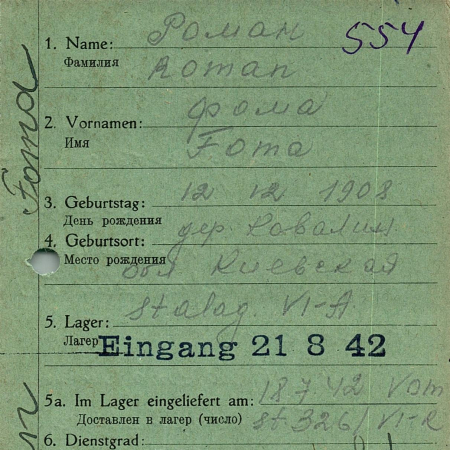 554
Роман
1. Name:
Фамилия
Roman
Фома
2. Vornamen:
Имя
Foma
Foma
3. Geburtstag: 12 12 1908
День рождения
дер. Ковалин
4. Geburtsort:
Место рождения
обл Киевская
Stalag. VI-A
5. Lager:
Лагер
Eingang 21 8 42
5a. Im Lager eingeliefert am: 18 7 42 vom
Доставлен в лагер (число) St 326/VI-K
6. Dienstgrad: